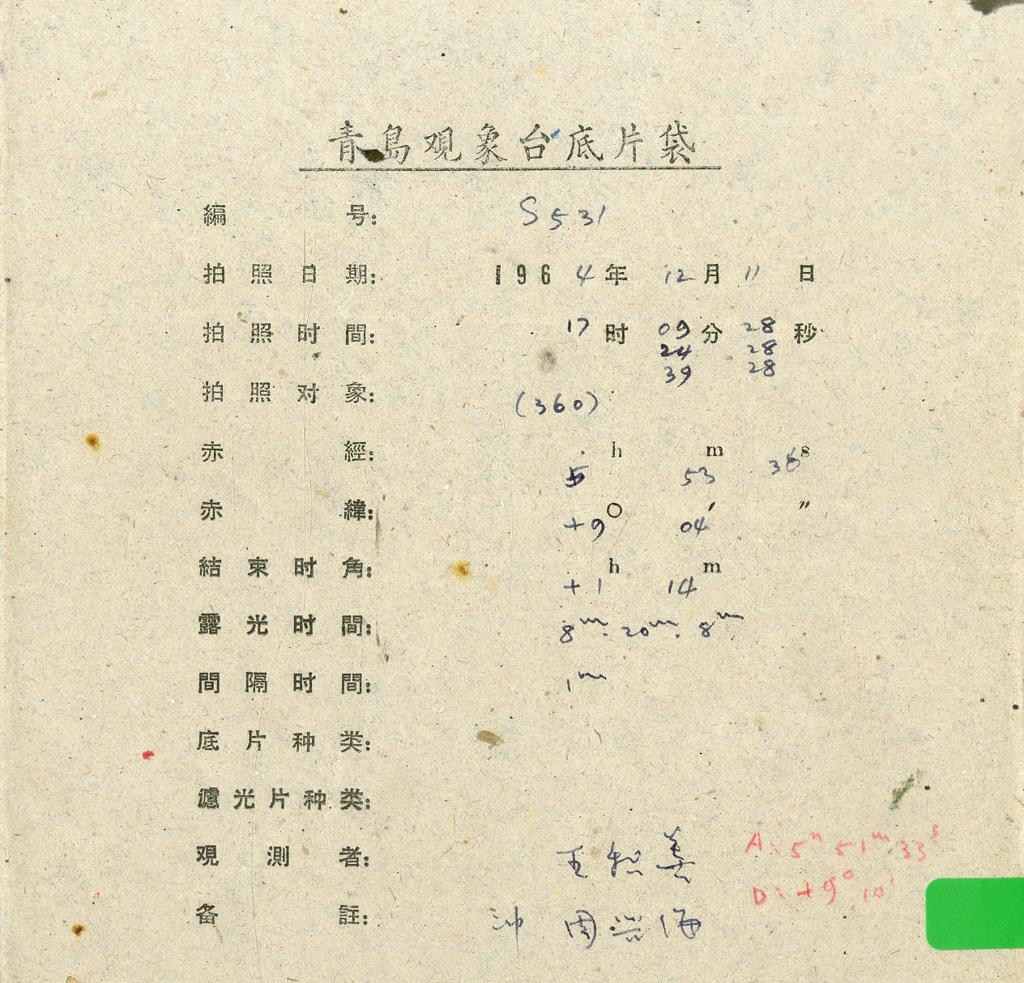 青島观象台底片袋
編号: S531
拍照日期: 1964年12月11日
拍照时間: 17时09分28秒
24 28
39 28
拍照对象: (360)
赤經: 5h 53m 38s
赤緯: +9° 04′ ″
結束时角: +1h 14m
露光时間: 8m. 20m. 8m
間隔时間: 1m
底片种类:
濾光片种类:
观測者: 王
A: 5h 51m 33s
D: +9° 10′
备註: 冲 周 海